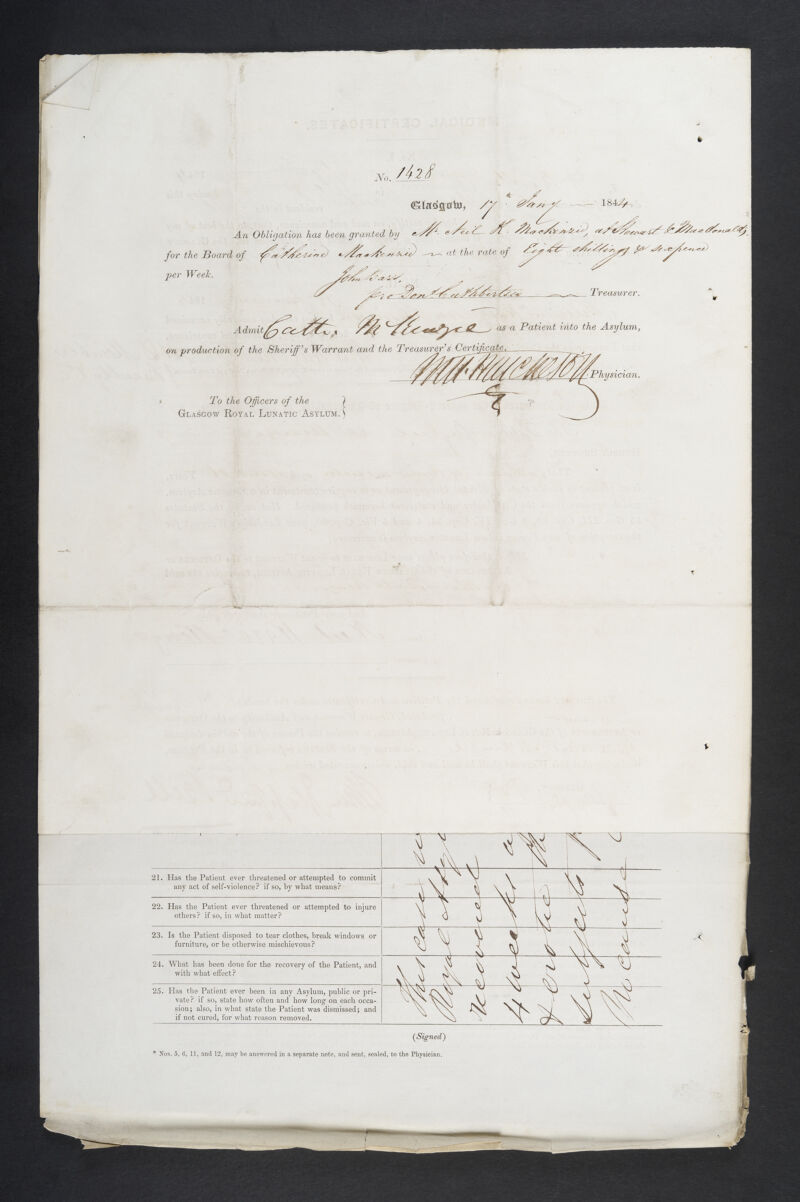 No. 1428
Glasgow, 17th Jany 1844
An Obligation has been granted by Mr Neil K. Mackenzie, at Stewart & Macdonalds,
for the Board of Catherine Mackenzie at the rate of Eight shillings & sixpence
per Week.
John
pro Dond Cuthbertson Treasurer.
Admit Cathr. McKenzie as a Patient into the Asylum,
on production of the Sheriff's Warrant and the Treasurer's Certificate.
Wm Hutcheson Physician.
To the Officers of the
Glasgow Royal Lunatic Asylum.
21. Has the Patient ever threatened or attempted to commit
any act of self-violence? if so, by what means?
22. Has the Patient ever threatened or attempted to injure
others? if so, in what matter?
23. Is the Patient disposed to tear clothes, break windows or
furniture, or be otherwise mischievous?
24. What has been done for the recovery of the Patient, and
with what effect?
25. Has the Patient ever been in any Asylum, public or pri-
vate? if so, state how often and how long on each occa-
sion; also, in what state the Patient was dismissed; and
if not cured, for what reason removed.
This case
Royal
recovered
4 weeks
& erotic
subjects
No cause
(Signed)
* Nos. 5, 6, 11, and 12, may be answered in a separate note, and sent, sealed, to the Physician.